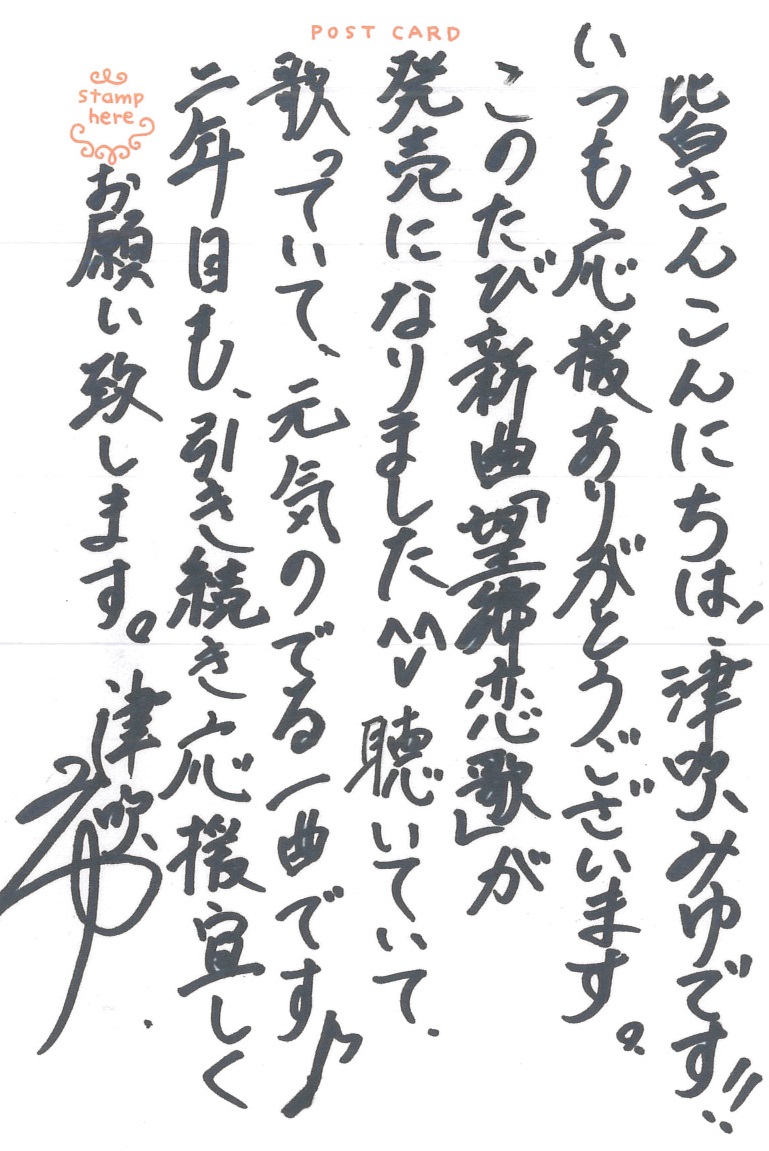 POST CARD
stamp
here
皆さんこんにちは!津吹みゆです!!
いつも応援ありがとうございます。
このたび新曲「望郷恋歌」が
発売になりました^^聴いていて、
歌っていて、元気のでる一曲です♪
二年目も、引き続き応援宜しく
お願い致します。
津吹みゆ